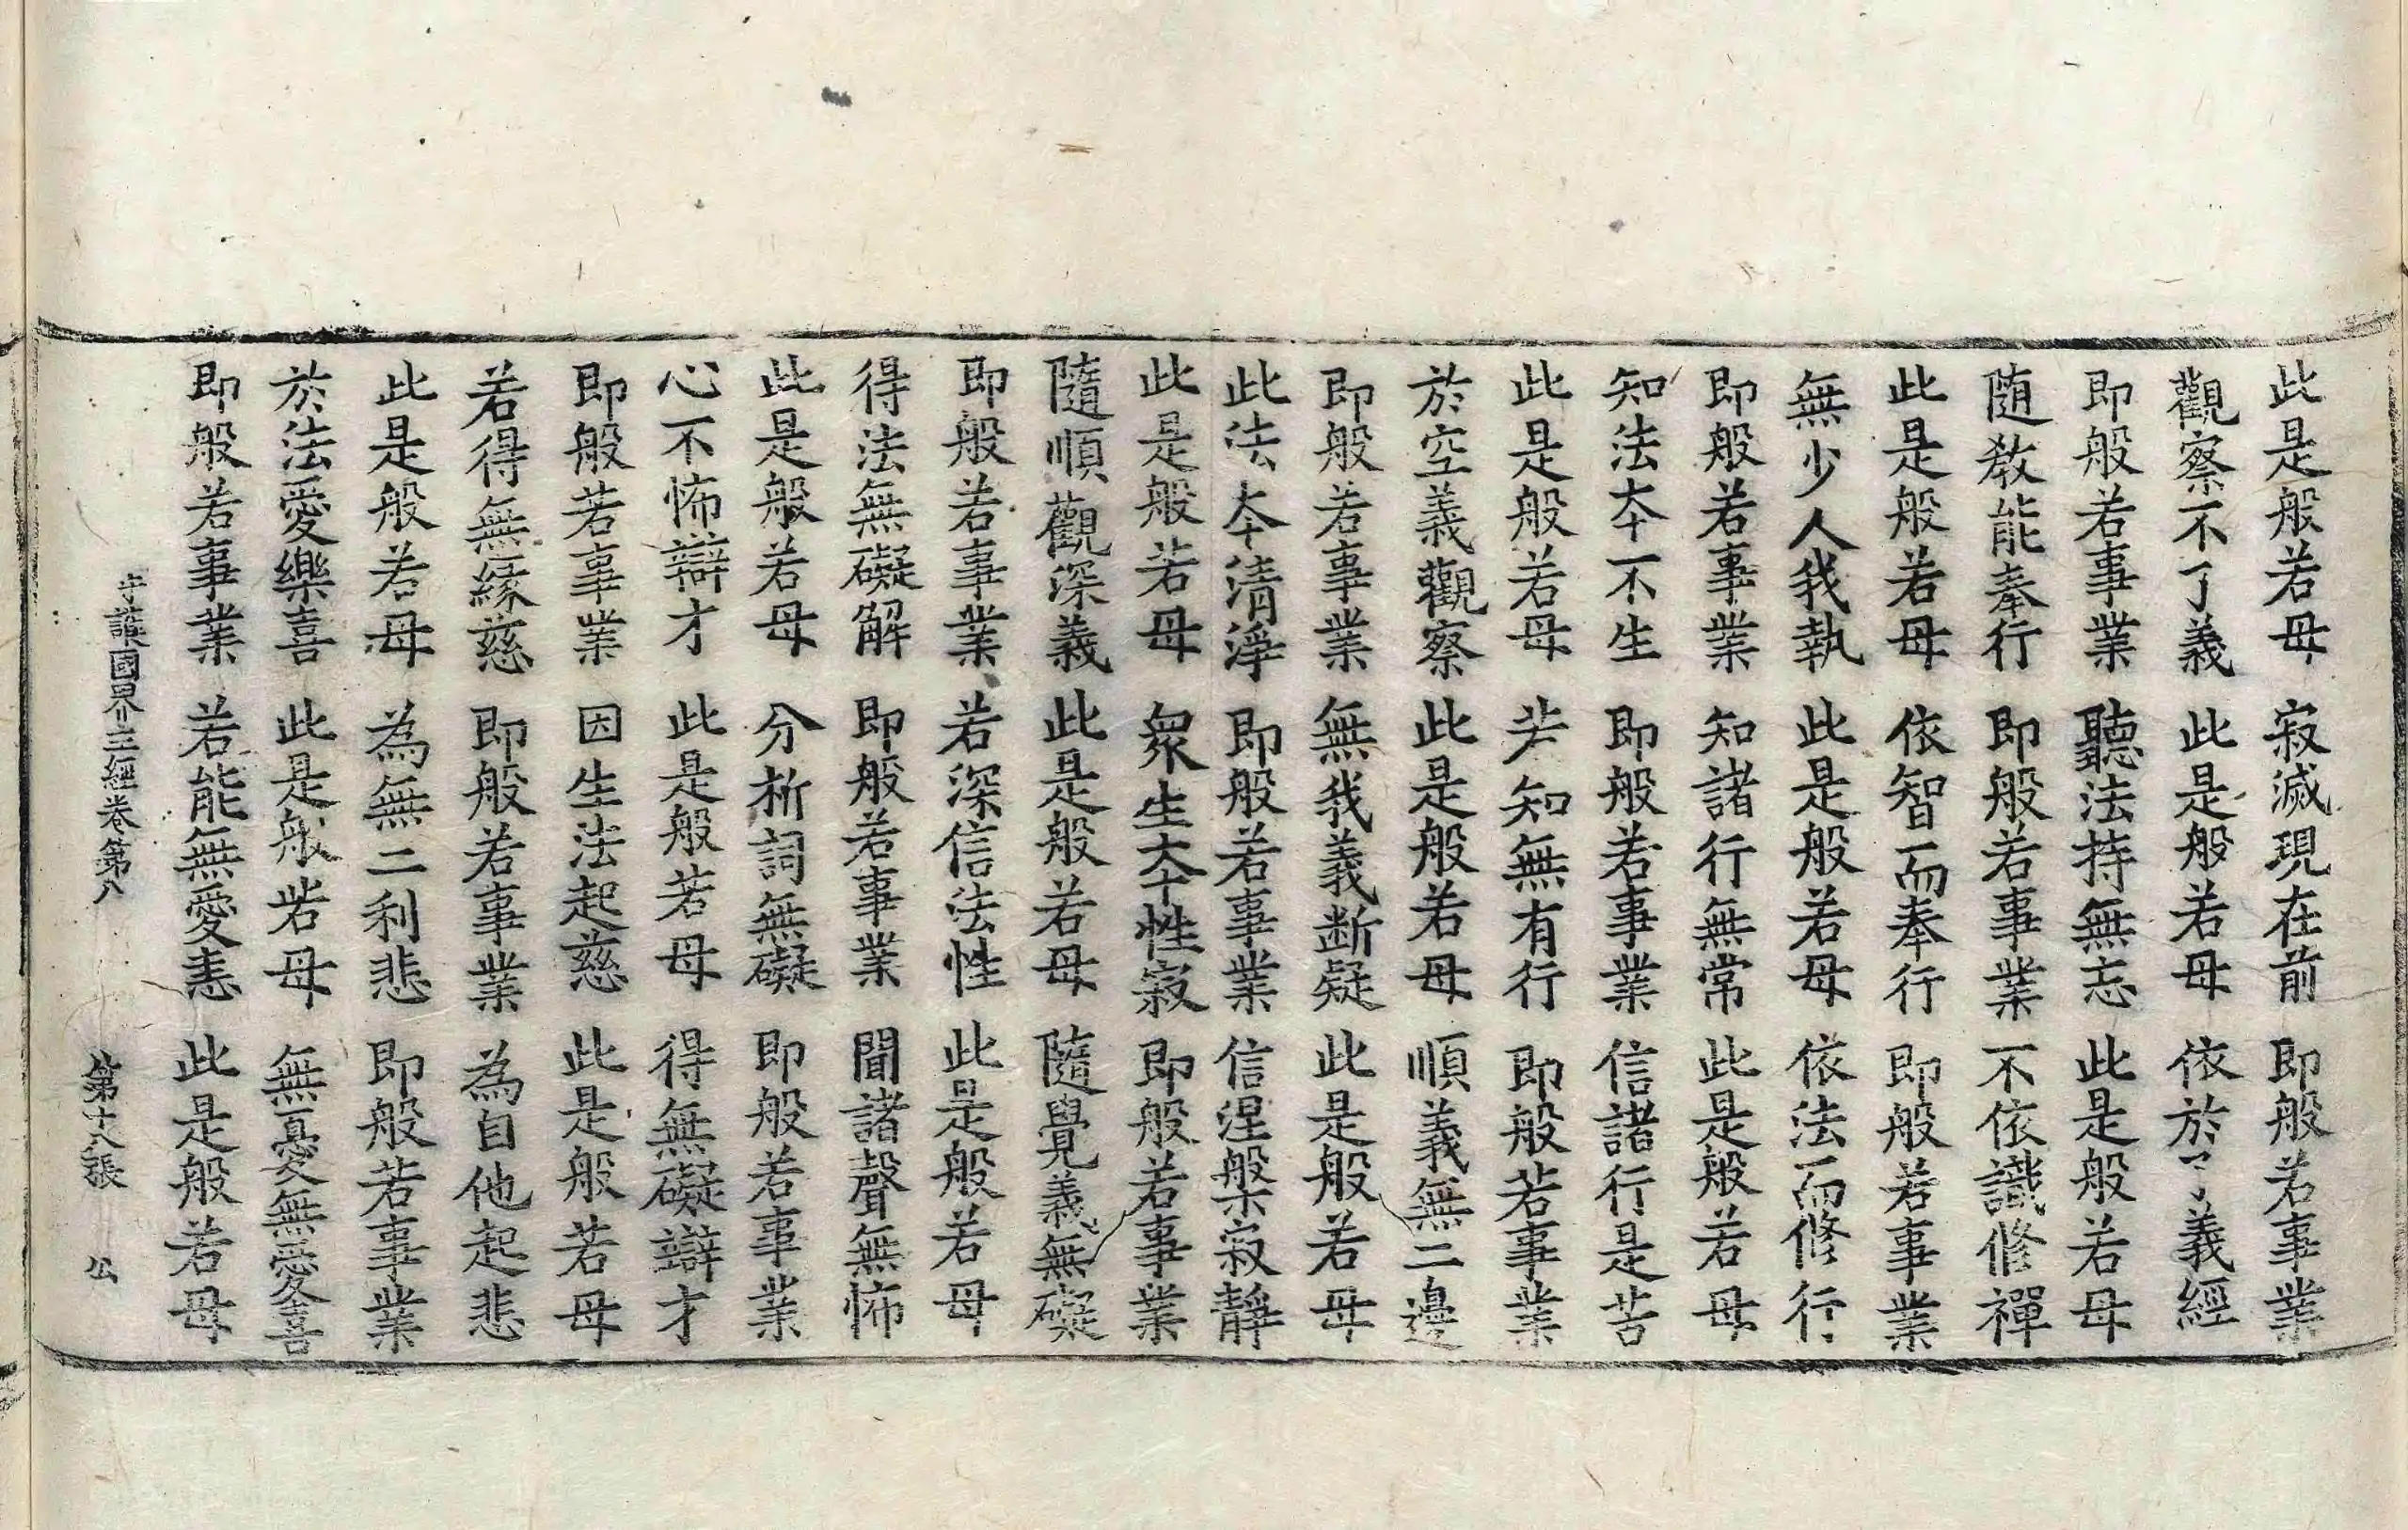 此是般若母　寂滅現在前　即般若事業
觀察不了義　此是般若母　依於了義經
即般若事業　聽法持無忘　此是般若母
随教能奉行　即般若事業　不依識修禪
此是般若母　依智而奉行　即般若事業
無少人我執　此是般若母　依法而修行
即般若事業　知諸行無常　此是般若母
知法夲不生　即般若事業　信諸行是苦
此是般若母　若知無有行　即般若事業
於空義觀察　此是般若母　順義無二邊
即般若事業　無我義断疑　此是般若母
此法夲清淨　即般若事業　信涅槃寂靜
此是般若母　衆生夲性寂　即般若事業
隨順觀深義　此是般若母　隨覺義無礙
即般若事業　若深信法性　此是般若母
得法無礙解　即般若事業　聞諸聲無怖
此是般若母　分析詞無礙　即般若事業
心不怖辯才　此是般若母　得無礙辯才
即般若事業　因生法起慈　此是般若母
若得無緣慈　即般若事業　為自他起悲
此是般若母　為無二利悲　即般若事業
於法愛樂喜　此是般若母　無憂無愛喜
即般若事業　若能無愛恚　此是般若母
守護國界主經卷第八　第十八張　公